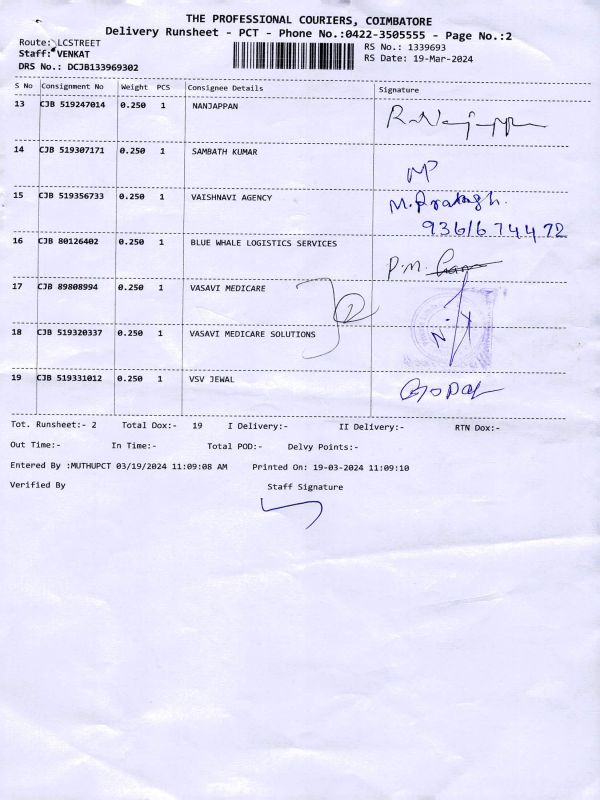 THE PROFESSIONAL COURIERS, COIMBATORE
Delivery Runsheet - PCT - Phone No.:0422-3505555 - Page No.:2
Route: LCSTREET RS No.: 1339693
Staff: VENKAT RS Date: 19-Mar-2024
DRS No.: DCJB133969302
S No Consignment No Weight PCS Consignee Details Signature
13 CJB 519247014 0.250 1 NANJAPPAN
14 CJB 519307171 0.250 1 SAMBATH KUMAR
15 CJB 519356733 0.250 1 VAISHNAVI AGENCY
9361674472
16 CJB 80126402 0.250 1 BLUE WHALE LOGISTICS SERVICES
P.M.
17 CJB 89808994 0.250 1 VASAVI MEDICARE
2
18 CJB 519320337 0.250 1 VASAVI MEDICARE SOLUTIONS
19 CJB 519331012 0.250 1 VSV JEWAL
Gopal
Tot. Runsheet:- 2 Total Dox:- 19 I Delivery:- II Delivery:- RTN Dox:-
Out Time:- In Time:- Total POD:- Delvy Points:-
Entered By :MUTHUPCT 03/19/2024 11:09:08 AM Printed On: 19-03-2024 11:09:10
Verified By Staff Signature